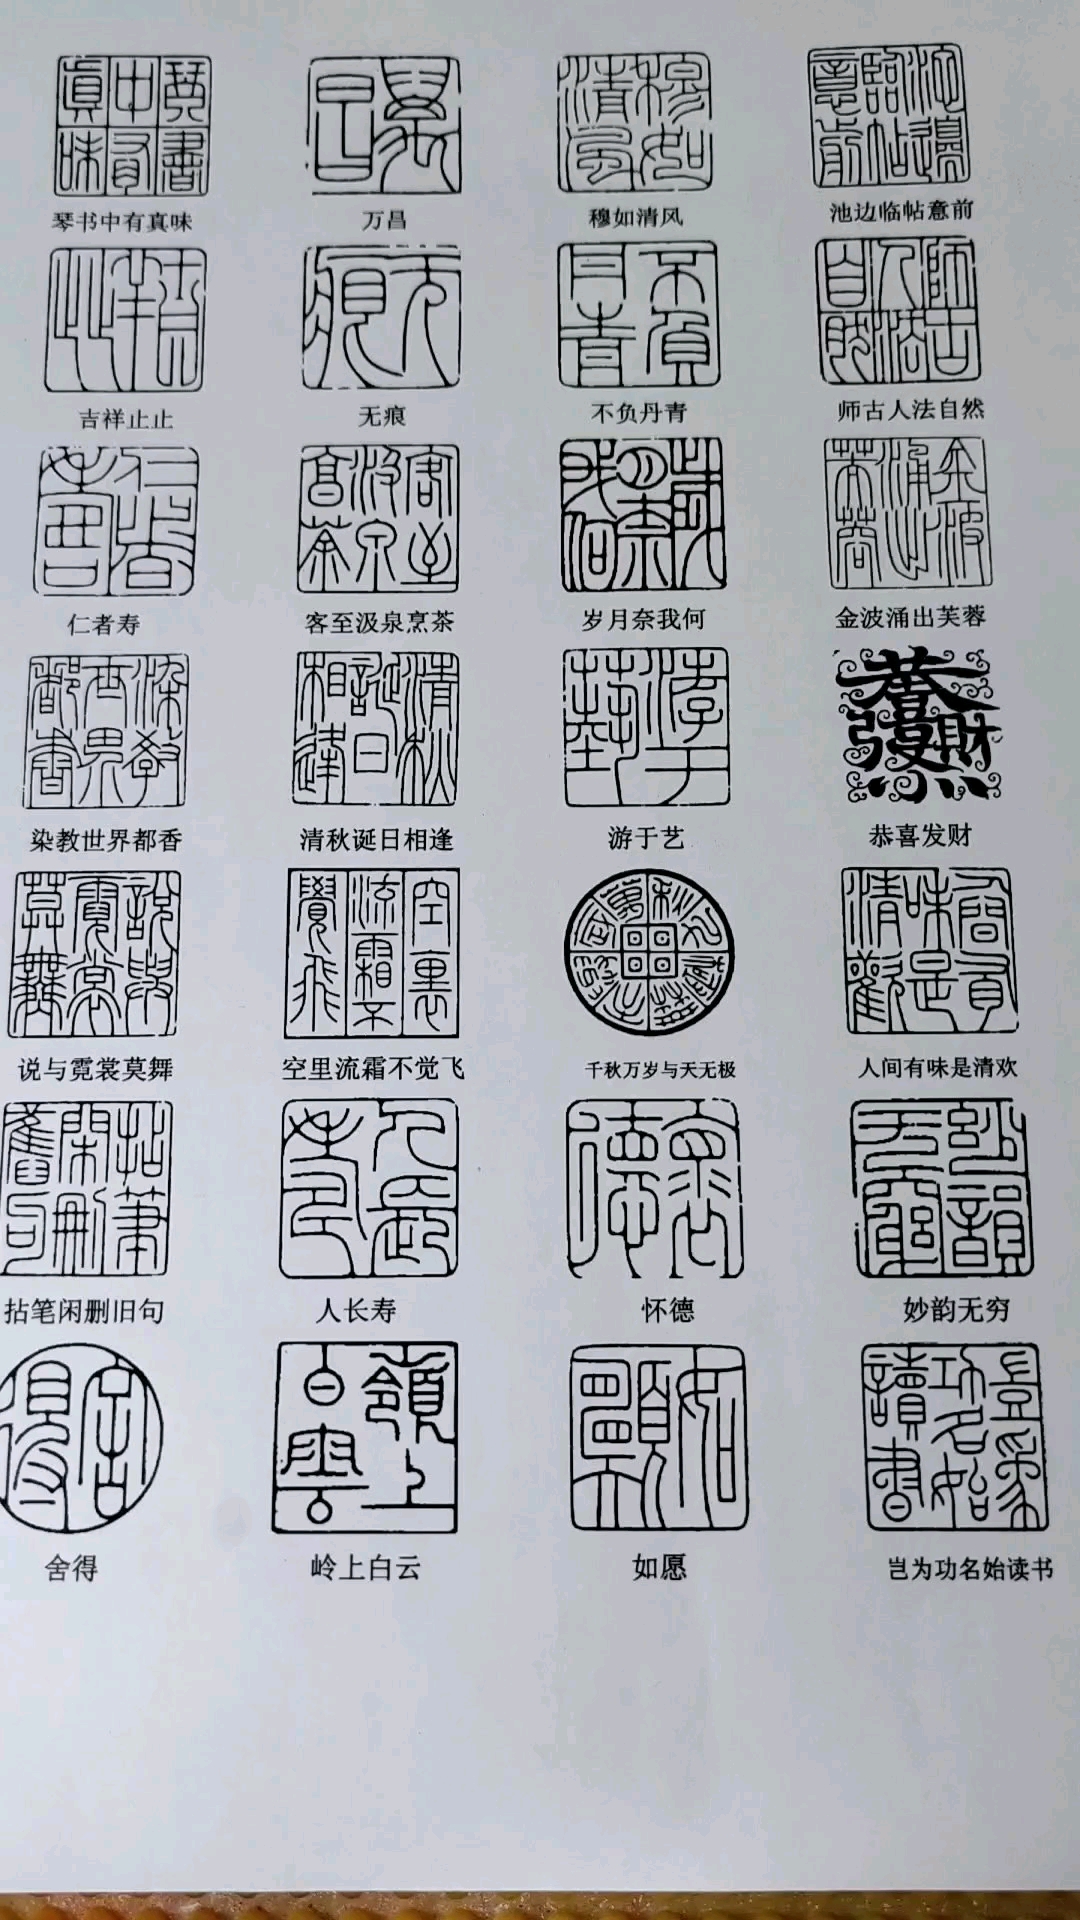 琴书中有真味
万昌
穆如清风
池边临帖意前
吉祥止止
无痕
不负丹青
师古人法自然
仁者寿
客至汲泉烹茶
岁月奈我何
金波涌出芙蓉
染教世界都香
清秋诞日相逢
游于艺
恭喜发财
说与霓裳莫舞
空里流霜不觉飞
千秋万岁与天无极
人间有味是清欢
拈笔闲删旧句
人长寿
怀德
妙韵无穷
舍得
岭上白云
如愿
岂为功名始读书